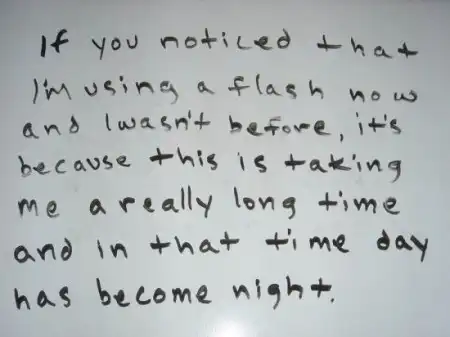 If you noticed that
I'm using a flash now
and I wasn't before, it's
because this is taking
me a really long time
and in that time day
has become night.